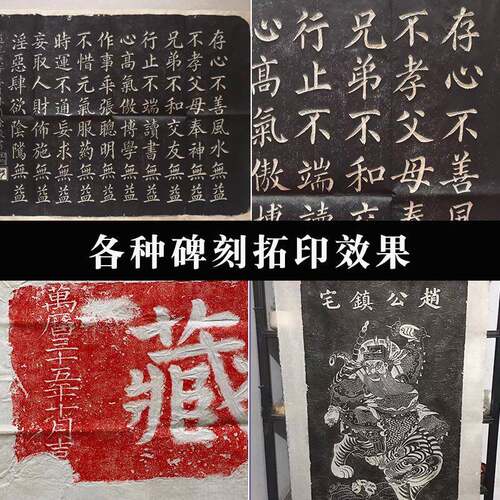 存心不善風水無益
不孝父母奉神無益
兄弟不和交友無益
行止不端讀書無益
心高氣傲博學無益
作事乖張聰明無益
不惜元氣服葯無益
時運不通妄求無益
妄取人財佈施無益
淫惡肆欲陰騭無益
存心不善風
不孝父母奉
兄弟不和交
行止不端讀
心高氣傲博
各种碑刻拓印效果
藏
萬曆三十五年十月吉
趙公鎮宅